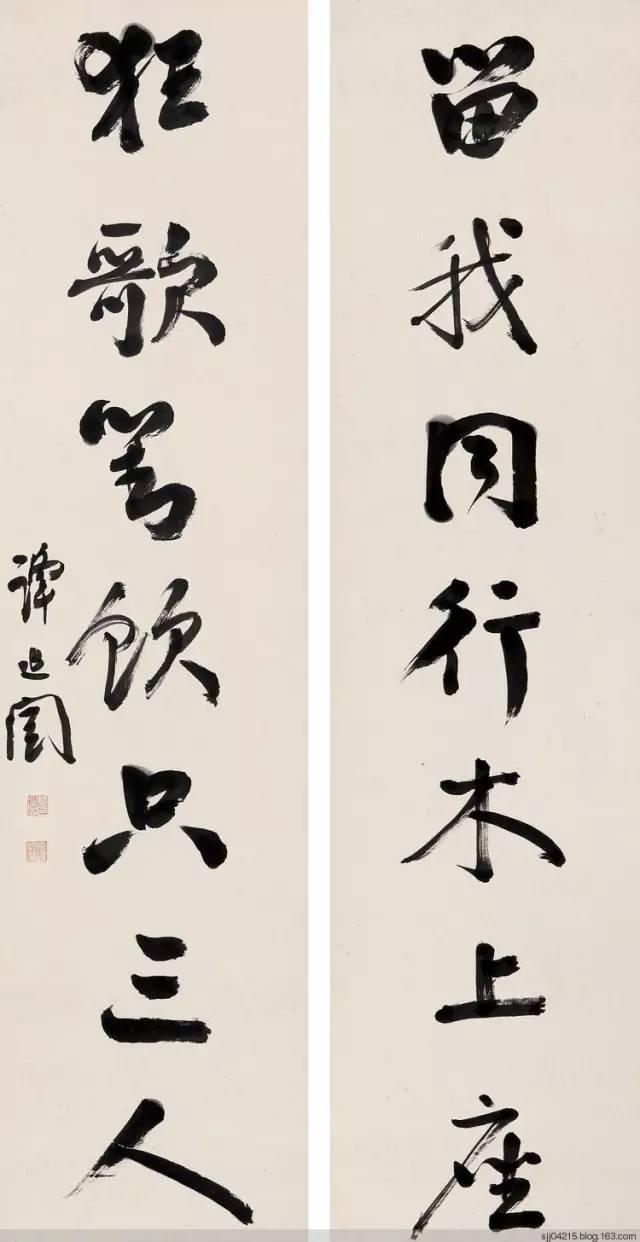 留我同行木上座
狂歌飲只三人
譚延闓
sjj04215.blog.163.com